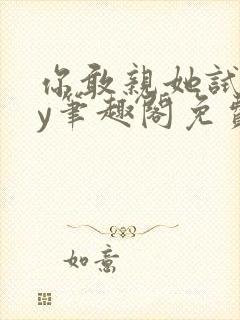 你敢亲她试
y笔趣阁免费
如意